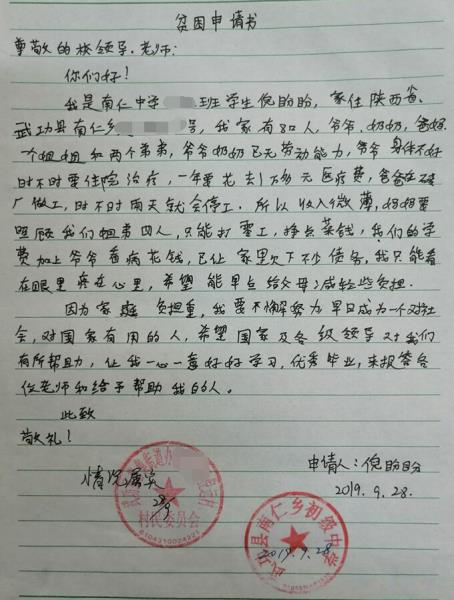 贫困申请书
尊敬的校领导、老师:
你们好!
我是南仁中学 班学生倪盼盼,家住陕西省、
武功县南仁乡 号,我家有8口人,爷爷、奶奶,爸妈
一个姐姐和两个弟弟,爷爷奶奶已无劳动能力,爷爷身体不好
时不时要住院治疗,一年要花去1万多元医疗费,爸爸在砖
厂做工,时不时雨天就会停工。所以收入微薄,妈妈要
照顾我们姐弟四人,只能打零工,挣点菜钱,我们的学
费加上爷爷看病花钱,已让家里欠下不少债务,我只能看
在眼里疼在心里,希望能早点给父母减轻些负担。
因为家庭负担重,我要不懈努力早日成为一个对社
会,对国家有用的人,希望国家及各级领导对我们
有所帮助,让我一心一意好好学习,优秀毕业,来报答各
位老师和给予帮助我的人。
此致
敬礼!
情况属实
申请人:倪盼盼
2019.9.28.
村民委员会
6104310024221
武功县南仁乡初级中学
2019.9.28